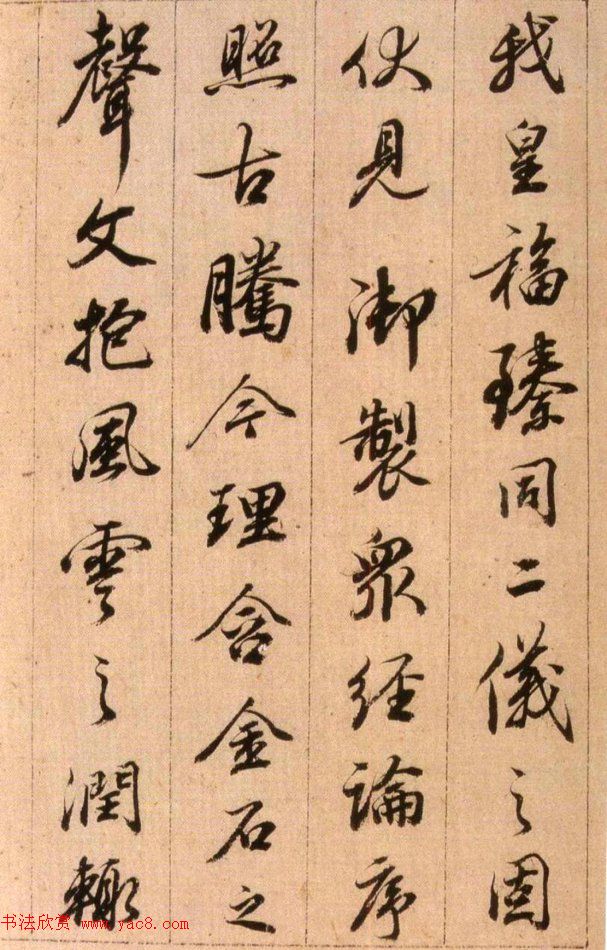 我皇福臻同二儀之固
伏見御製眾經論序
照古騰今理含金石之
聲文抱風雲之潤輙
书法欣赏 www.yac8.com